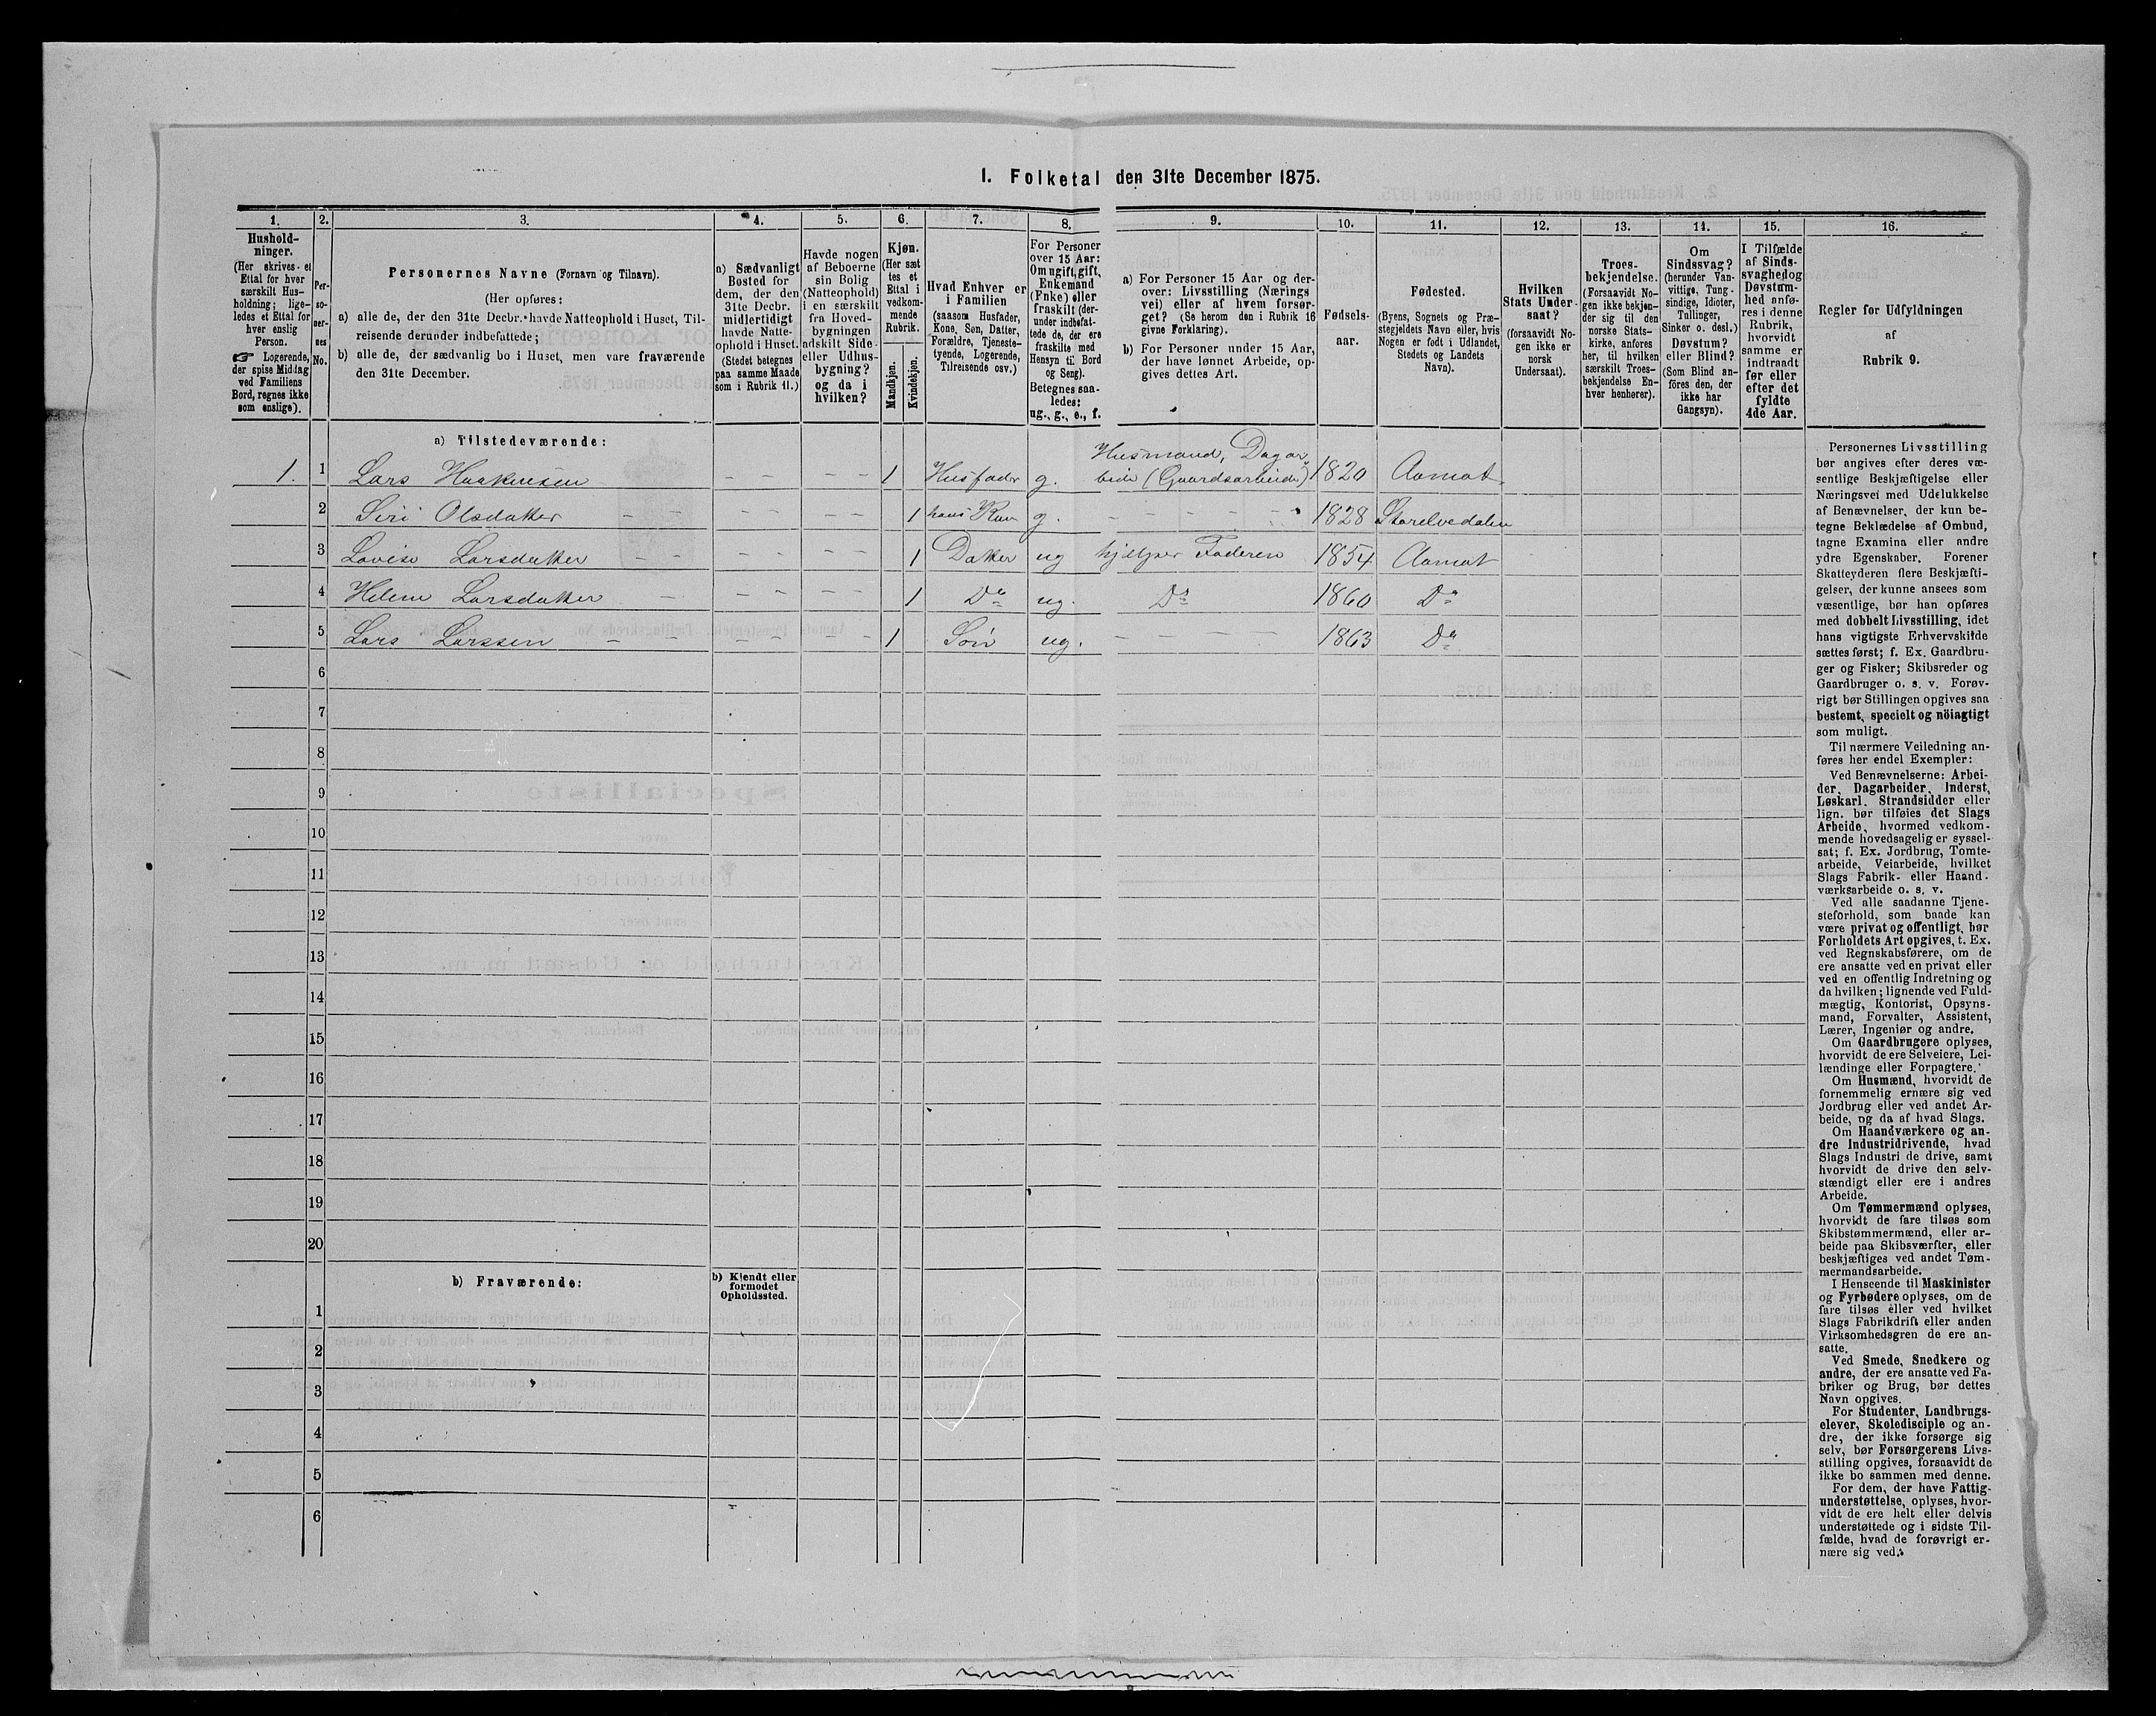 1. Folketal den 31te December 1875.
1.
Hushold-
ninger.
(Her skrives et
Ettal for hver
særskilt Hus-
holdning; lige-
ledes et Ettal for
hver enslig
Person.
☞ Logerende,
der spise Middag
ved Familiens
Bord, regnes ikke
som enslige).
2.
Per-
so-
ner-
nes
No.
3.
Personernes Navne (Fornavn og Tilnavn).
(Her opføres:
a) alle de, der den 31te Decbr. havde Natteophold i Huset, Til-
reisende derunder indbefattede;
b) alle de, der sædvanlig bo i Huset, men vare fraværende
den 31te December.
4.
a) Sædvanligt
Bosted for
dem, der den
31te Decbr.
midlertidigt
havde Natte-
ophold i Huset.
(Stedet betegnes
paa samme Maade
som i Rubrik 11.)
5.
Havde nogen
af Beboerne
sin Bolig
(Natteophold)
i en særskilt
fra Hoved-
bygningen
adskilt Side-
eller Udhus-
bygning?
og da i
hvilken?
6.
Kjøn.
(Her sæt
tes et
Ettal i
vedkom-
mende
Rubrik.
Mandkjøn.
Kvindekjøn.
7.
Hvad Enhver er
i Familien
(saasom Husfader,
Kone, Søn, Datter,
Forældre, Tjeneste-
tyende, Logerende,
Tilreisende osv.)
8.
For Personer
over 15 Aar:
Om ugift, gift,
Enkemand
(Enke) eller
fraskilt (der-
under indbefat-
tede de, der ere
fraskilte med
Hensyn til Bord
og Seng).
Betegnes saa-
ledes:
ug., g., e., f.
9.
a) For Personer 15 Aar og der-
over: Livsstilling (Nærings
vei) eller af hvem forsør-
get? (Se herom den i Rubrik 16
givne Forklaring).
b) For Personer under 15 Aar,
der have lønnet Arbeide, op-
gives dettes Art.
10.
Fødsels-
aar.
11.
Fødested.
(Byens, Sognets og Præ-
stegjeldets Navn eller, hvis
Nogen er født i Udlandet,
Stedets og Landets
Navn).
12.
Hvilken
Stats Under-
saat?
(forsaavidt No-
gen ikke er
norsk
Undersaat).
13.
Troes-
bekjendelse.
(Forsaavidt No-
gen ikke bekjen-
der sig til den
norske Stats-
kirke, anføres
her, til hvilken
særskilt Troes-
bekjendelse En-
hver henhører).
14.
Om
Sindssvag?
(herunder Van-
vittige, Tung-
sindige, Idioter,
Tullinger,
Sinker o. desl.)
Døvstum?
eller Blind?
(Som Blind an-
föres den, der
ikke har
Gangsyn).
15.
I Tilfælde
af Sinds-
svaghed og
Døvstum-
hed anfø-
res i denne
Rubrik,
hvorvidt
samme er
indtraadt
før eller
efter det
fyldte
4de Aar.
16.
Regler for Udfyldningen
af
Rubrik 9.
a) Tilstedeværende:
1. 1 Lars Haakensen - - - - 1 Husfader g. Husmand, Dagar
beide (Gaardsarbeide) 1820 Aamot
2 Siri Olsdatter - - - - - 1 hans Kone g. - - - - 1828 Storelvedalen
3 Lovise Larsdatter - - - - - 1 Datter ug hjelper Faderen 1854 Aamot
4 Helene Larsdatter - - - - - 1 Do ug. Do 1860 Do
5 Lars Larssen - - - - - 1 Søn ug. - - - - 1863 Do
6
7
8
9
10
11
12
13
14
15
16
17
18
19
20
b) Fraværende:
b) Kjendt eller
formodet
Opholdssted.
1
2
3
4
5
6
Personernes Livsstilling
bør angives efter deres væ-
sentlige Beskjæftigelse eller
Næringsvei med Udelukkelse
af Benævnelser, der kun be-
tegne Beklædelse af Ombud,
tagne Examina eller andre
ydre Egenskaber. Forener
Skatteyderen flere Beskjæfti-
gelser, der kunne ansees som
væsentlige, bør han opføres
med dobbelt Livsstilling, idet
hans vigtigste Erhvervskilde
sættes først; f. Ex. Gaardbru-
ger og Fisker; Skibsreder og
Gaardbruger o. s. v. Forøv-
rigt bør Stillingen opgives saa
bestemt, specielt og nöiagtigt
som muligt.
Til nærmere Veiledning an-
føres her endel Exempler:
Ved Benævnelserne: Arbei-
der, Dagarbeider, Inderst,
Løskarl, Strandsidder eller
lign. bør tilføies det Slags
Arbeide, hvormed vedkom-
mende hovedsagelig er syssel-
sat; f. Ex. Jordbrug, Tomte-
arbeide, Veiarbeide, hvilket
Slags Fabrik- eller Haand-
værksarbeide o. s. v.
Ved alle saadanne Tjene-
steforhold, som baade kan
være privat og offentligt, bør
Forholdets Art opgives, t. Ex.
ved Regnskabsførere, om de
ere ansatte ved en privat eller
ved en offentlig Indretning og
da hvilken; lignende ved Fuld-
mægtig, Kontorist, Opsyns-
mand, Forvalter, Assistent,
Lærer, Ingeniør og andre.
Om Gaardbrugere oplyses,
hvorvidt de ere Selveiere, Lei-
lændinge eller Forpagtere.
Om Husmænd, hvorvidt de
fornemmelig ernære sig ved
Jordbrug eller ved andet Ar-
beide, og da af hvad Slags.
Om Haandværkere og an-
dre Industridrivende, hvad
Slags Industri de drive, samt
hvorvidt de drive den selv-
stændigt eller ere i andres
Arbeide.
Om Tømmermænd oplyses,
hvorvidt de fare tilsøs som
Skibstømmermænd, eller ar-
beide paa Skibsværfter, eller
beskjæftiges ved andet Tøm-
mermandsarbeide.
I Henseende til Maskinister
og Fyrbødere oplyses, om de
fare tilsøs eller ved hvilket
Slags Fabrikdrift eller anden
Virksomhedsgren de ere an-
satte.
Ved Smede, Snedkere og
andre, der ere ansatte ved Fa-
briker og Brug, bør dettes
Navn opgives.
For Studenter, Landbrugs-
elever, Skoledisciple og an-
dre, der ikke forsørge sig
selv, bør Forsørgerens Livs-
stilling opgives, forsaavidt de
ikke bo sammen med denne.
For dem, der have Fattig-
understøttelse, oplyses, hvor-
vidt de ere helt eller delvis
understøttede og i sidste Til-
fælde, hvad de forøvrigt er-
nære sig ved.